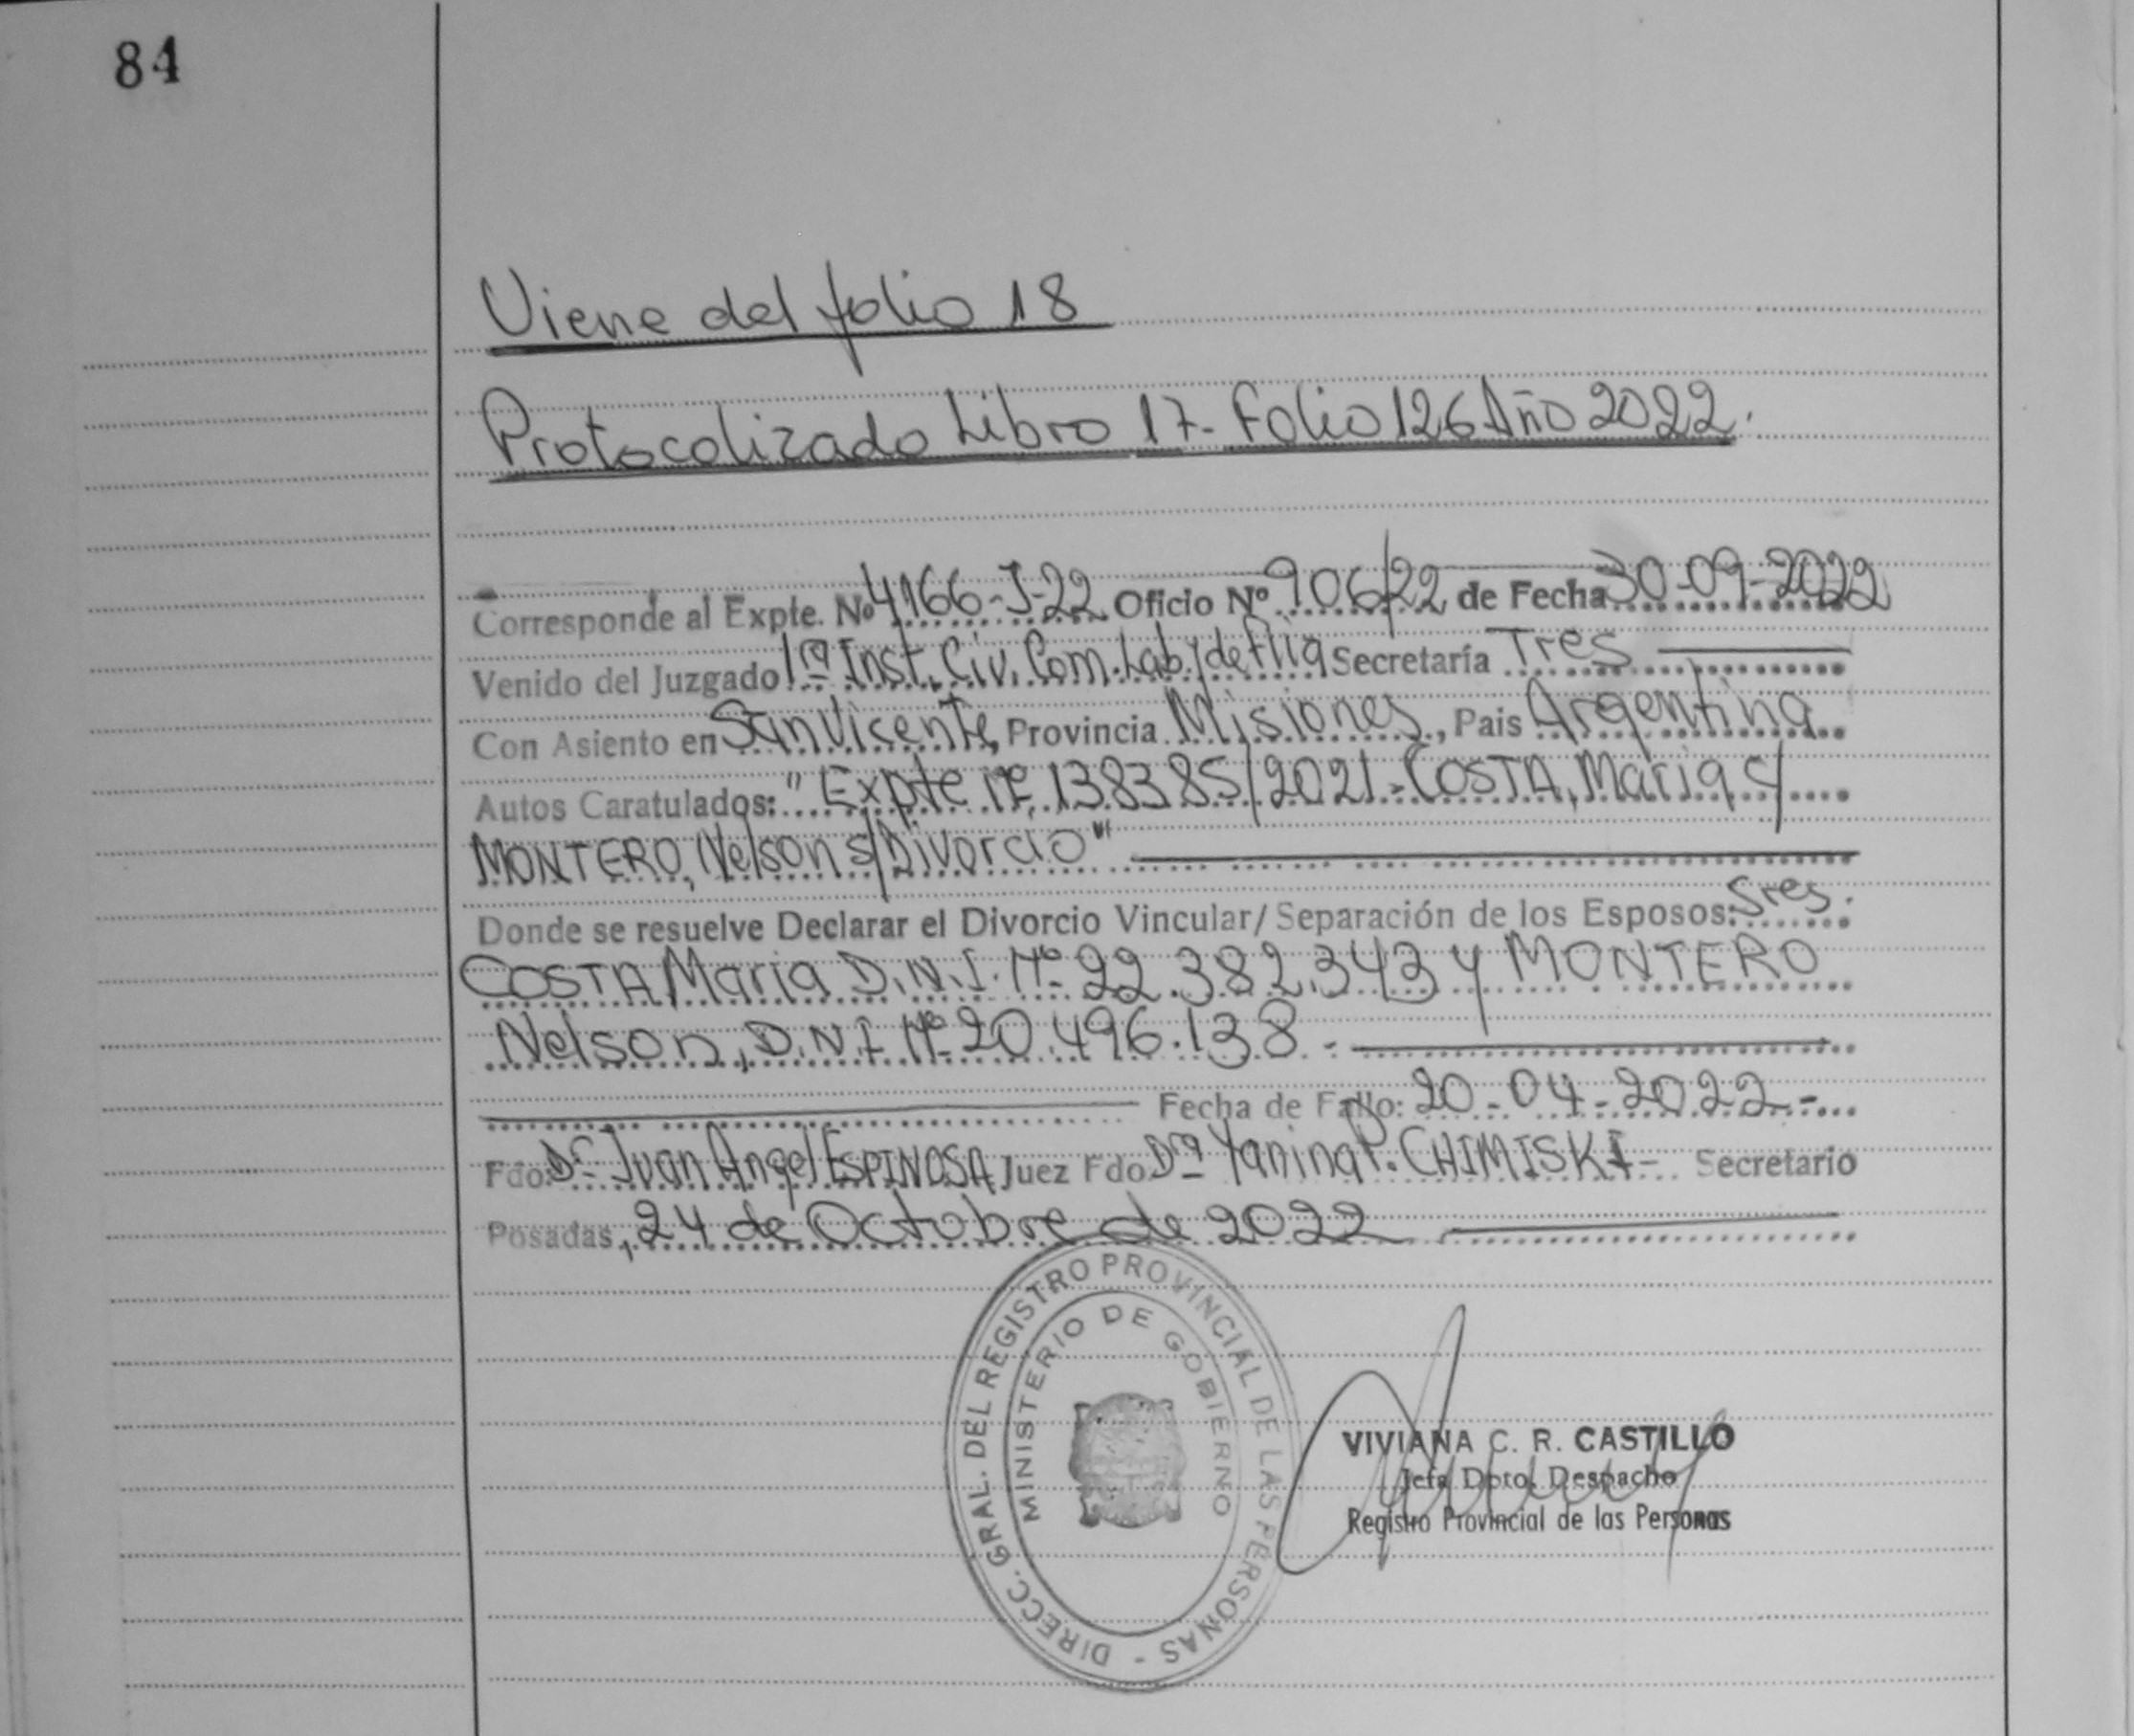 84
Viene del folio 18
Protocolizado Libro 17- Folio 126 Año 2022.
Corresponde al Expte. Nº 4166-J-22 Oficio Nº 906/22 de Fecha 30-09-2022
Venido del Juzgado 1ra Inst. Civ. Com. Lab. y de Flia Secretaría Tres
Con Asiento en San Vicente, Provincia Misiones, Pais Argentina
Autos Caratulados: "Expte nº 138385/2021- COSTA, Maria c/
MONTERO, Nelson s/Divorcio"
Donde se resuelve Declarar el Divorcio Vincular/ Separación de los Esposos: Sres.
COSTA Maria D.N.I. Nº 22.382.343 y MONTERO
Nelson, D.N.I Nº 20.496.138-
Fecha de Fallo: 20-04-2022-
Fdo: Dr Juan Angel ESPINOSA Juez Fdo Dra Yanina P. CHIMISKI- Secretario
Posadas, 24 de Octubre de 2022
DIRECC. GRAL. DEL REGISTRO PROVINCIAL DE LAS PERSONAS -
MINISTERIO DE GOBIERNO
VIVIANA C. R. CASTILLO
Jefa Dpto. Despacho
Registro Provincial de las Personas